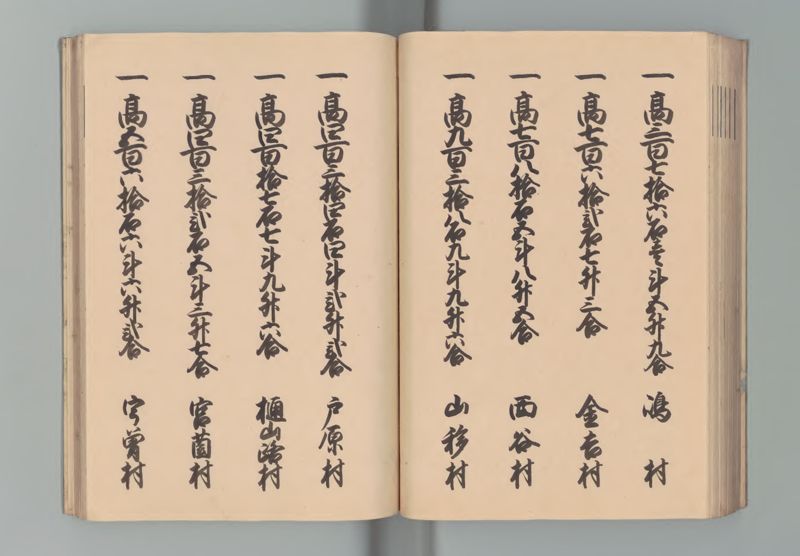 一 高三百七拾六石壱斗五升九合 鴻村
一 高七百六拾弐石七升三合 金吉村
一 高七百八拾石五斗八升五合 西谷村
一 高九百三拾八石九斗九升六合 山移村
一 高四百三拾四石四斗弐升弐合 戸原村
一 高四百拾七石七斗九升六合 樋山路村
一 高四百三拾弐石五斗三升七合 宮園村
一 高五百六拾石六斗六升弐合 宇曽村